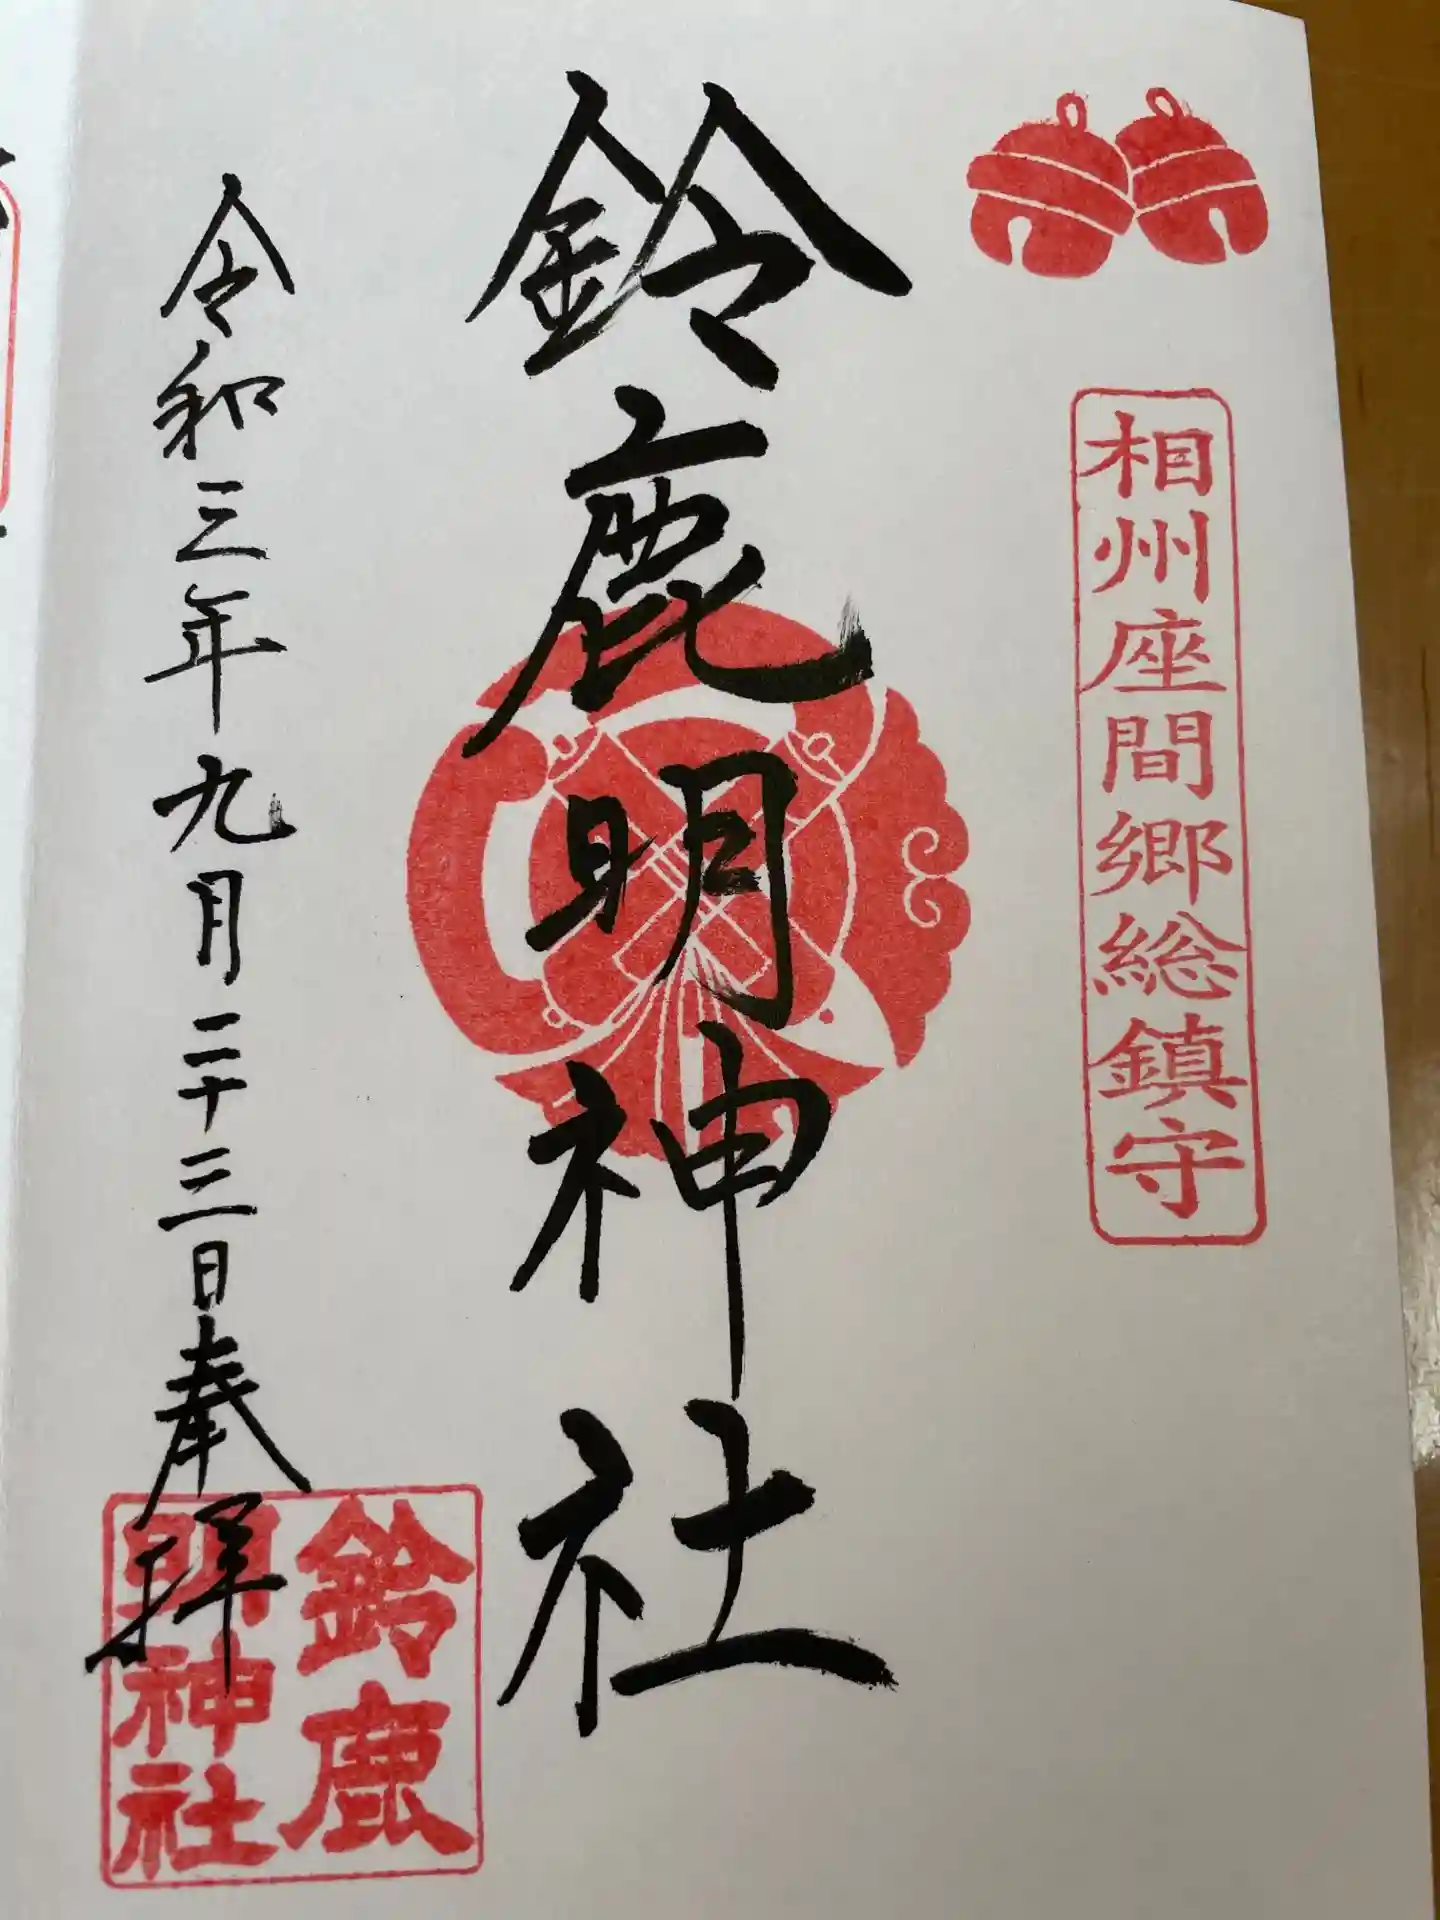 相州座間郷総鎮守
鈴鹿明神社
令和三年九月二十三日奉拝
鈴鹿
明神社